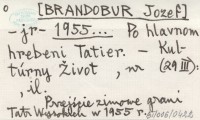 [BRANDOBUR Jozef]
-jr- 1955... Po hlavnom
hrebeni Tatier. - Kul-
túrny Život, nr (29 III):
, il.
Przejście zimowe grani
Tatr Wysokich w 1955 r.